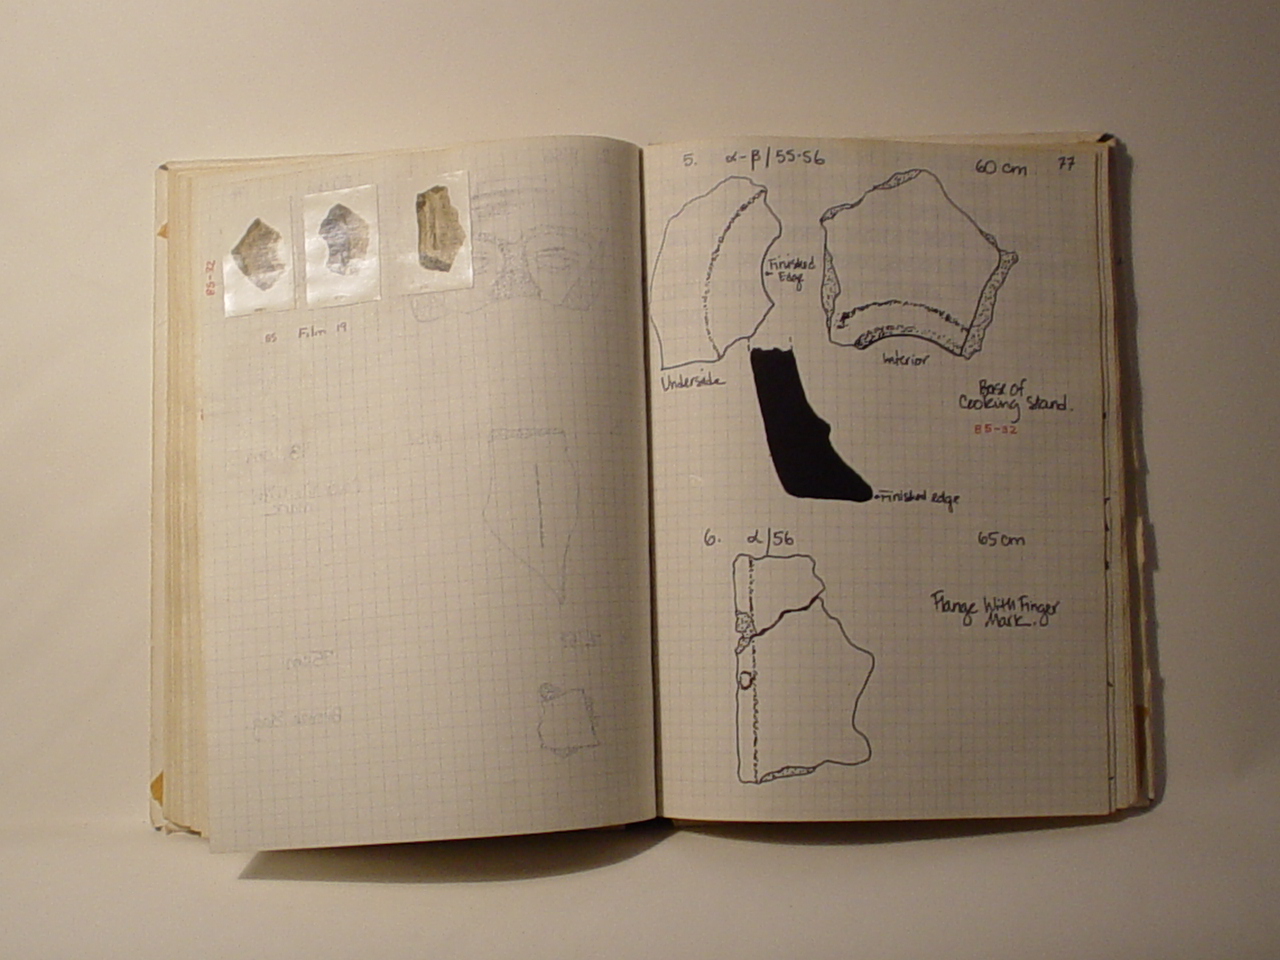 85-32
85 Film 19
5. α-β/55-56 60 cm 77
Finished
Edge
Underside
Interior
Base of
Cooking Stand.
85-32
Finished edge
6. α/56 65 cm
Flange With Finger
Mark.